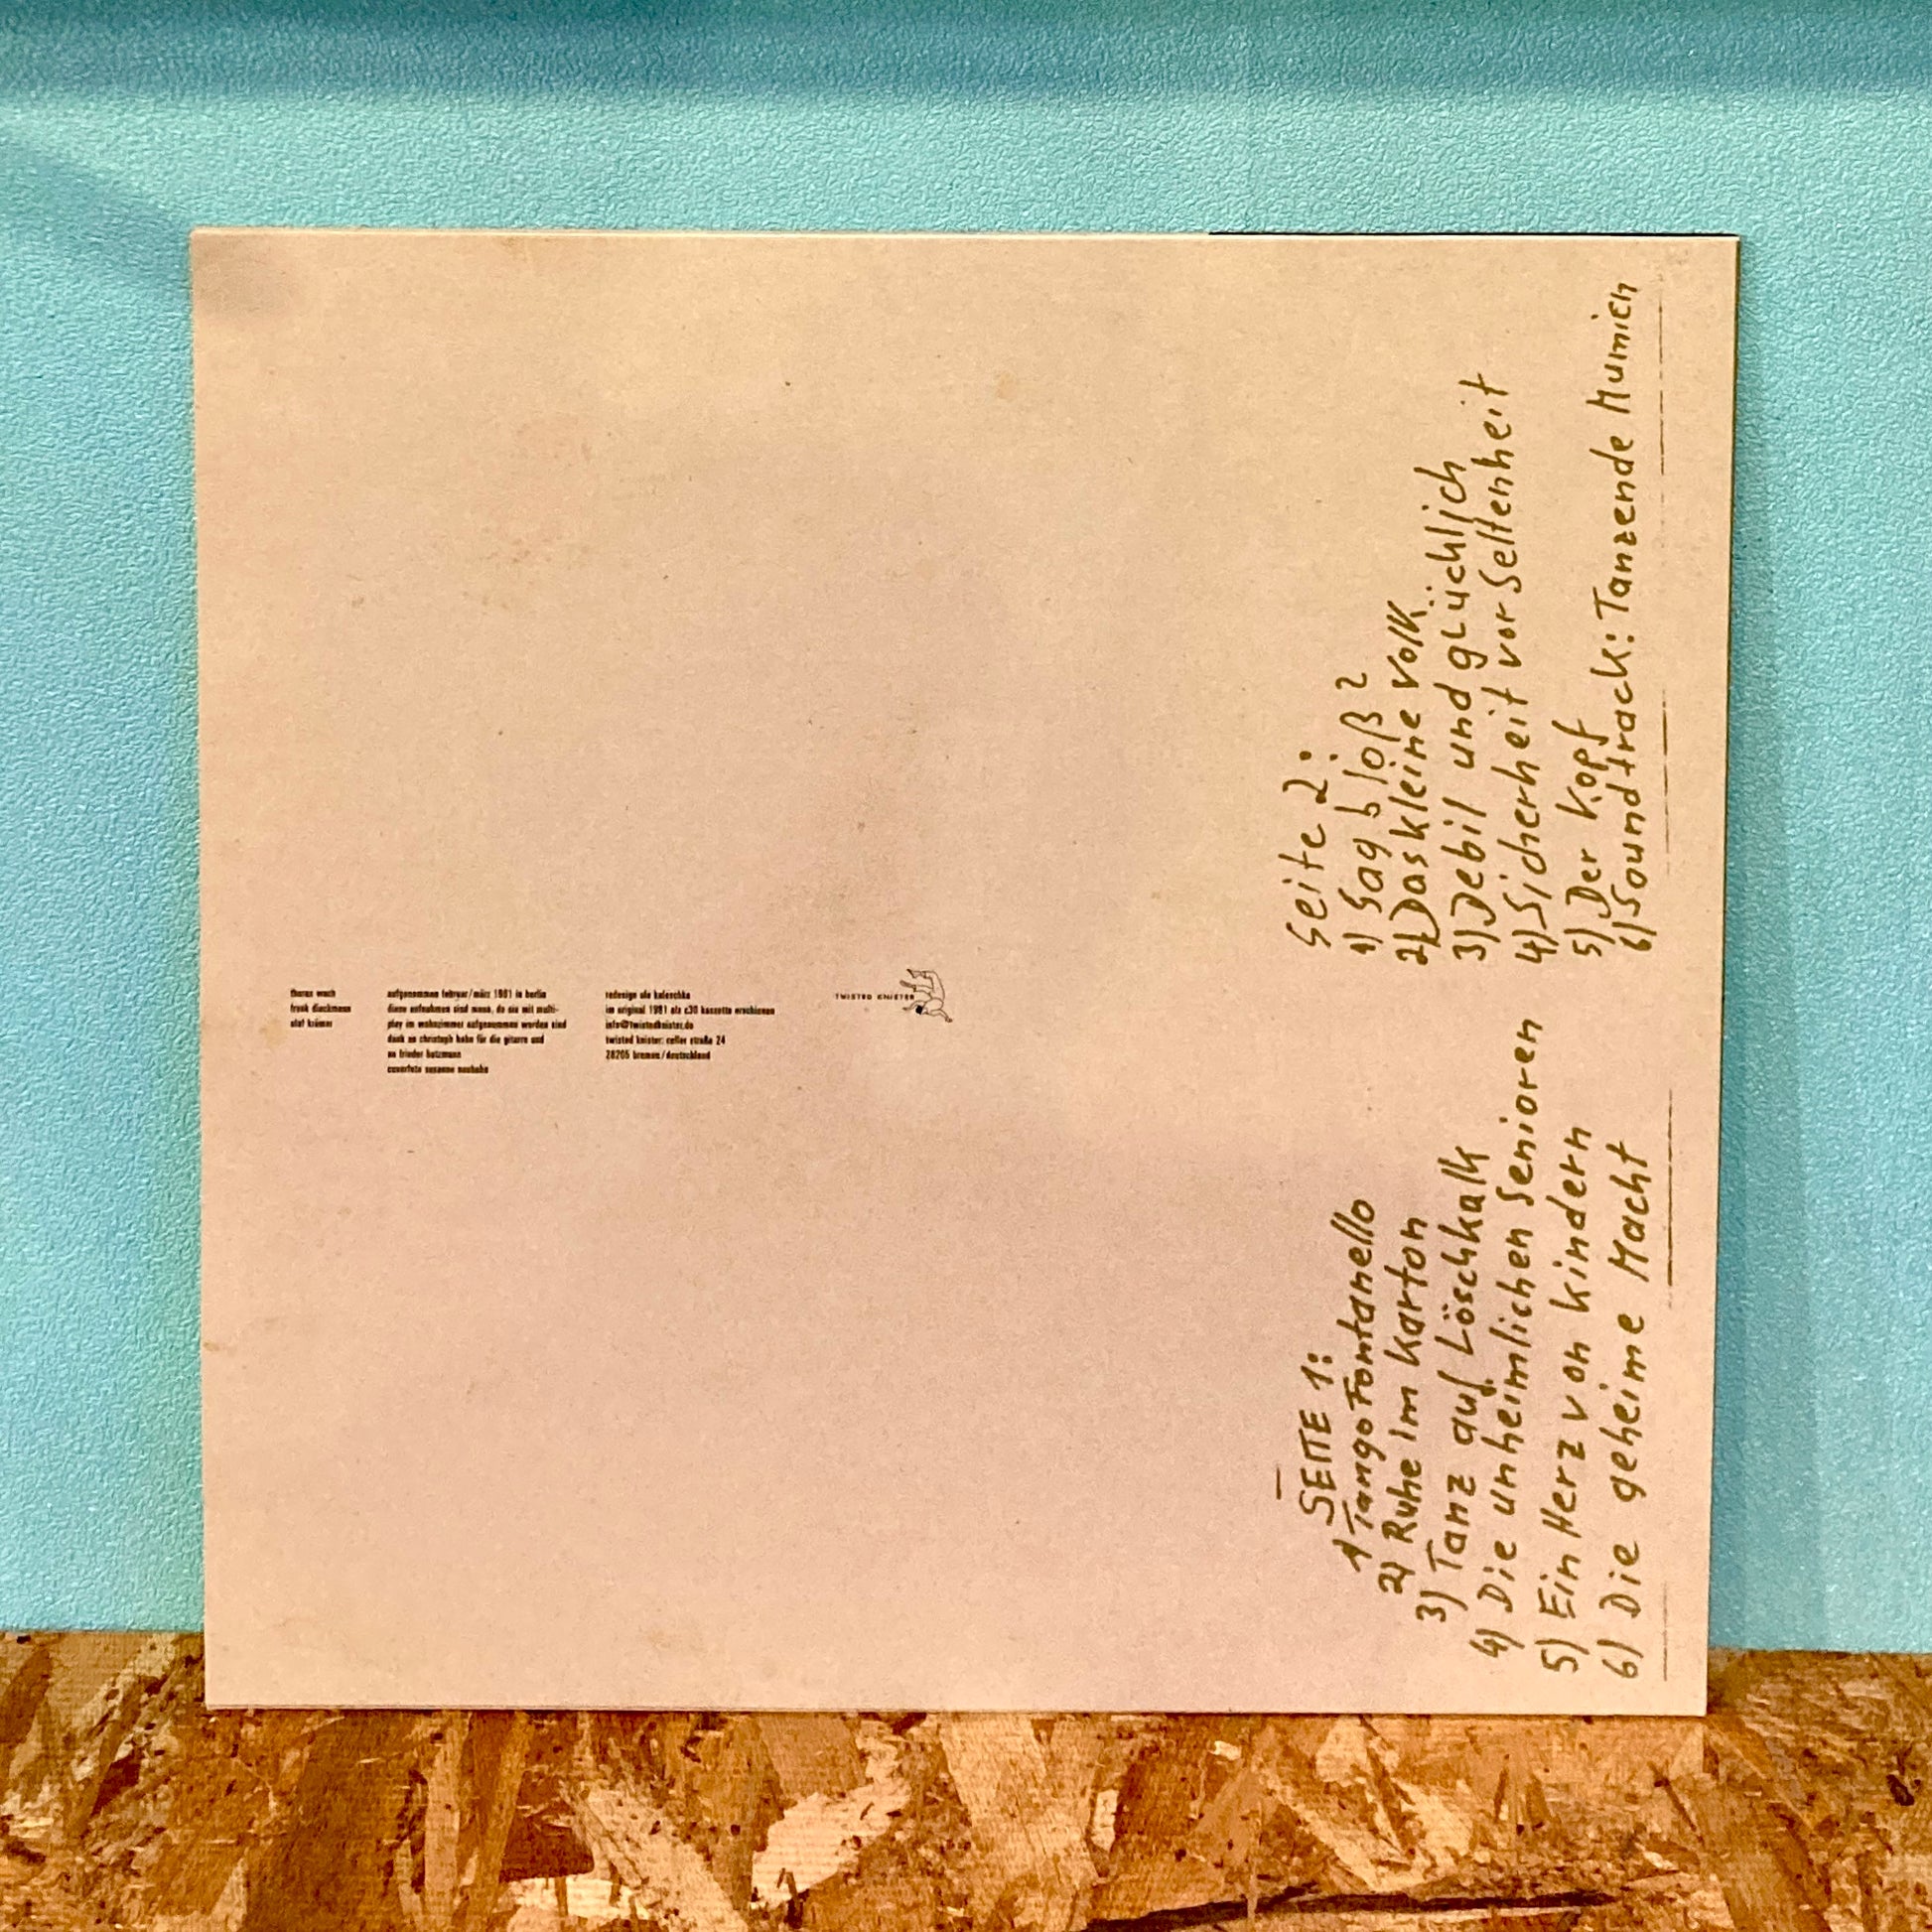 thomas wach
frank dieckmann
olaf krämer
aufgenommen februar/märz 1981 in berlin
diese aufnahmen sind mono, da sie mit multi-
play im wohnzimmer aufgenommen worden sind
dank an christoph hahn für die gitarre und
an frieder butzmann
coverfoto susanne
redesign ale kaleschke
im original 1981 als c30 kassette erschienen
info@twistedknister.de
twisted knister: celler straße 24
28205 bremen/deutschland
TWISTED KNISTER
SEITE 1:
1) Tango Fontanello
2) Ruhe im Karton
3) Tanz auf Löschkalk
4) Die unheimlichen Senioren
5) Ein Herz von Kindern
6) Die geheime Macht
Seite 2:
1) Sag bloß?
2) Das kleine Volk
3) Debil und glücklich
4) Sicherheit vor Seltenheit
5) Der Kopf
6) Soundtrack: Tanzende Mumien